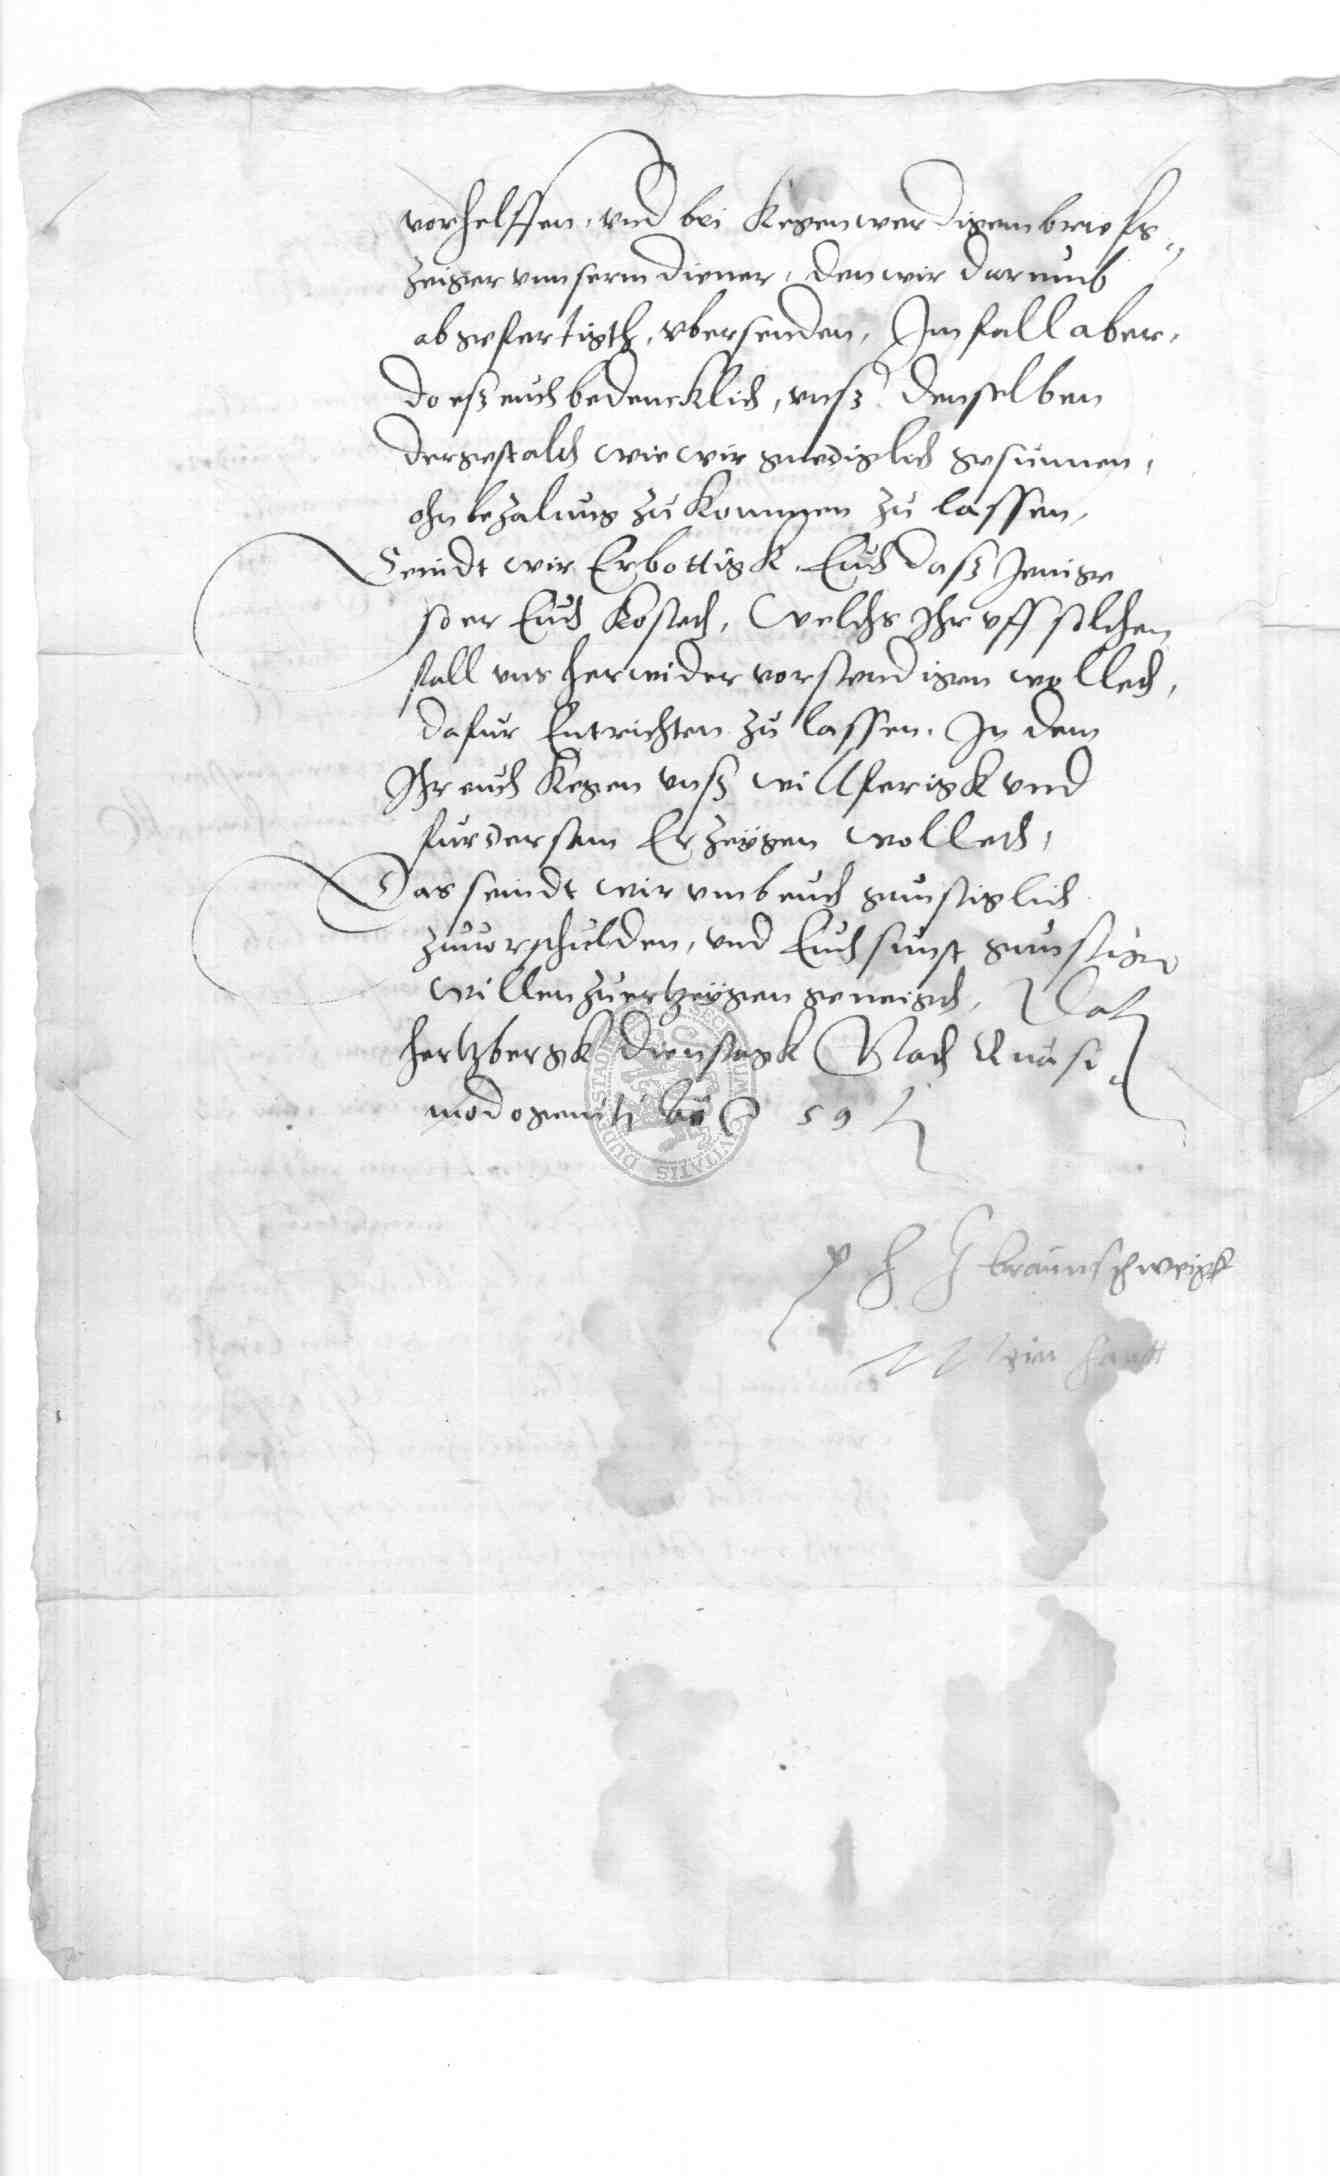 vorhelffen, vnd bei kegenwerdigem briefs
zeiger vnnserm diener, den wir darumb
abgefertigth, vbersenden, Im fall aber,
do eß euch bedencklich, vnß denselben
dergestaldt wie wir gnediglich gesunnen,
ohn bezalung zukommen zu lassen,
Seindt wir Erbottigk, Euch daß Jenige
so er Euch kosteth, welchs Ihr vff solchen
fall vns herwider vorstendigen wolleth,
dafur Entrichten zu lassen. In dem
Ihr euch kegen vnß willferigk vnd
furdersam Erzeigen wolleth,
Das seindt wir vmb euch gunstiglich
zuuorschulden, vnd Euch sunst gunstigen
willen zuertzeigen geneigth, Dat
hertzbergk Dienstagk Nach Quasi
modogeniti 59
p h z braunschweigk
Mein hantt